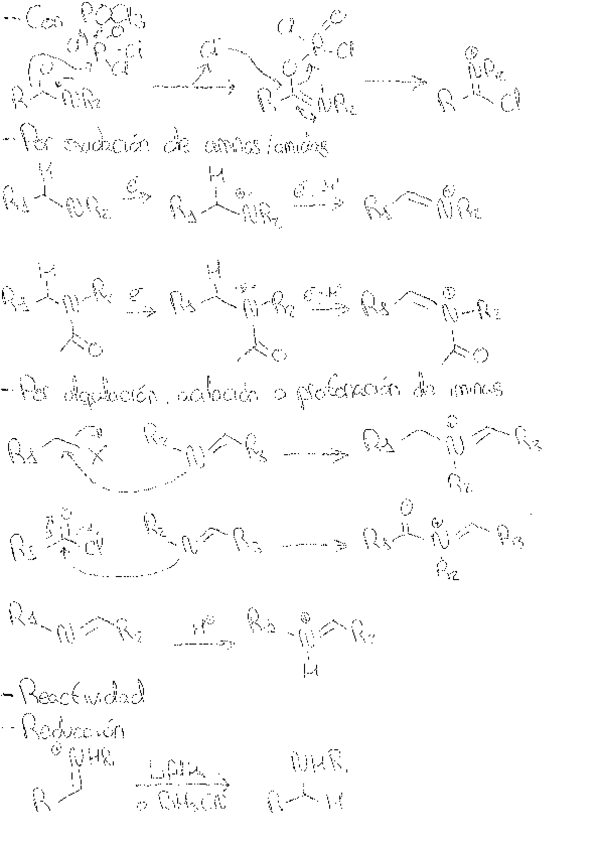 -- Con POCl3
O
P
Cl
Cl
R
NR2
Cl
Cl
O
P
Cl
O
R
NR2
NR2
R
Cl
- Por oxidación de aminas/amidas
H
R1
NR2
e-
H
R1
NR2
e-, H+
R1
NR2
H
R1
N
R2
O
e-
H
R1
N
R2
O
e-, H+
R1
N
R2
O
- Por alquilación, acilación o protonación de iminas
R1
X
R2
N
R3
R1
N
R3
R2
R1
O
Cl
R2
N
R3
R1
O
N
R3
R2
R1
N
R2
H
R1
N
R2
H
- Reactividad
-- Reducción
NHR
R
LiAlH4
o BH3CN
NHR
R
H